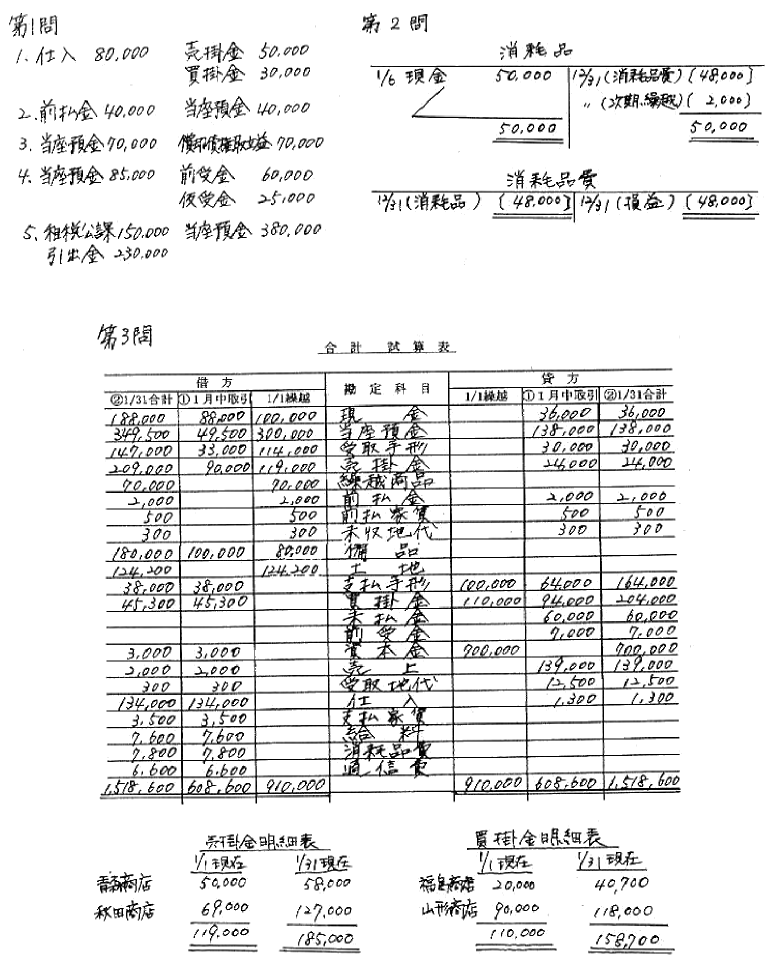 第1問
1. 仕入 80,000 売掛金 50,000
買掛金 30,000
2. 前払金 40,000 当座預金 40,000
3. 当座預金 70,000 償却債権取立益 70,000
4. 当座預金 85,000 前受金 60,000
仮受金 25,000
5. 租税公課 150,000 当座預金 380,000
引出金 230,000
第2問
消耗品
1/6 現金 50,000 12/31 (消耗品費) [48,000]
〃 (次期繰越) [2,000]
50,000 50,000
消耗品費
12/31 (消耗品) [48,000] 12/31 (損益) [48,000]
第3問
合計試算表
借方 勘定科目 貸方
②1/31合計 ①1月中取引 1/1繰越 1/1繰越 ①1月中取引 ②1/31合計
188,000 88,000 100,000 現金 36,000 36,000
349,500 49,500 300,000 当座預金 138,000 138,000
147,000 33,000 114,000 受取手形 30,000 30,000
209,000 90,000 119,000 売掛金 24,000 24,000
70,000 70,000 繰越商品
2,000 2,000 前払金 2,000 2,000
500 500 前払家賃 500 500
300 300 未収地代 300 300
180,000 100,000 80,000 備品
124,200 124,200 土地
38,000 38,000 支払手形 100,000 64,000 164,000
45,300 45,300 買掛金 110,000 94,000 204,000
未払金 60,000 60,000
前受金 7,000 7,000
3,000 3,000 資本金 700,000 700,000
2,000 2,000 売上 139,000 139,000
300 300 受取地代 12,500 12,500
134,000 134,000 仕入 1,300 1,300
3,500 3,500 支払家賃
7,600 7,600 給料
7,800 7,800 消耗品費
6,600 6,600 通信費
1,518,600 608,600 910,000 910,000 608,600 1,518,600
売掛金明細表
1/1現在 1/31現在
青森商店 50,000 58,000
秋田商店 69,000 127,000
119,000 185,000
買掛金明細表
1/1現在 1/31現在
福島商店 20,000 40,700
山形商店 90,000 118,000
110,000 158,700